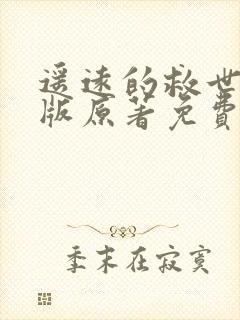 遥远的救世
版原著免费
季末在寂寞